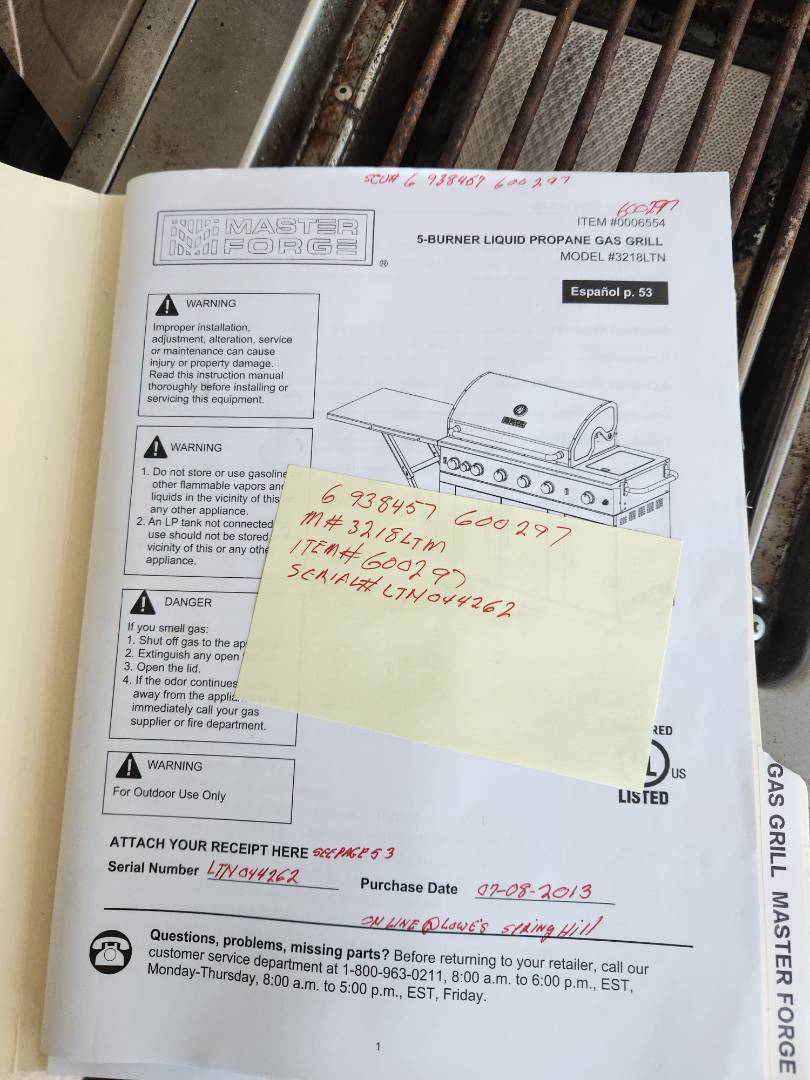 SCU# 6 938457 600297
600297
MASTER
FORGE
®
ITEM #0006554
5-BURNER LIQUID PROPANE GAS GRILL
MODEL #3218LTN
Español p. 53
WARNING
Improper installation,
adjustment, alteration, service
or maintenance can cause
injury or property damage.
Read this instruction manual
thoroughly before installing or
servicing this equipment.
WARNING
1. Do not store or use gasoline
other flammable vapors an
liquids in the vicinity of this
any other appliance.
2. An LP tank not connected
use should not be stored
vicinity of this or any othe
appliance.
DANGER
If you smell gas:
1. Shut off gas to the ap
2. Extinguish any open
3. Open the lid.
4. If the odor continues
away from the applia
immediately call your gas
supplier or fire department.
WARNING
For Outdoor Use Only
6 938457 600297
M# 3218LTM
ITEM# 600297
SERIAL# LTN044262
RED
L US
LISTED
ATTACH YOUR RECEIPT HERE SEE PAGE 53
Serial Number LTN044262
Purchase Date 07-08-2013
ON LINE @ LOWE'S SPRING Hill
Questions, problems, missing parts? Before returning to your retailer, call our
customer service department at 1-800-963-0211, 8:00 a.m. to 6:00 p.m., EST,
Monday-Thursday, 8:00 a.m. to 5:00 p.m., EST, Friday.
1
GAS GRILL MASTER FORGE